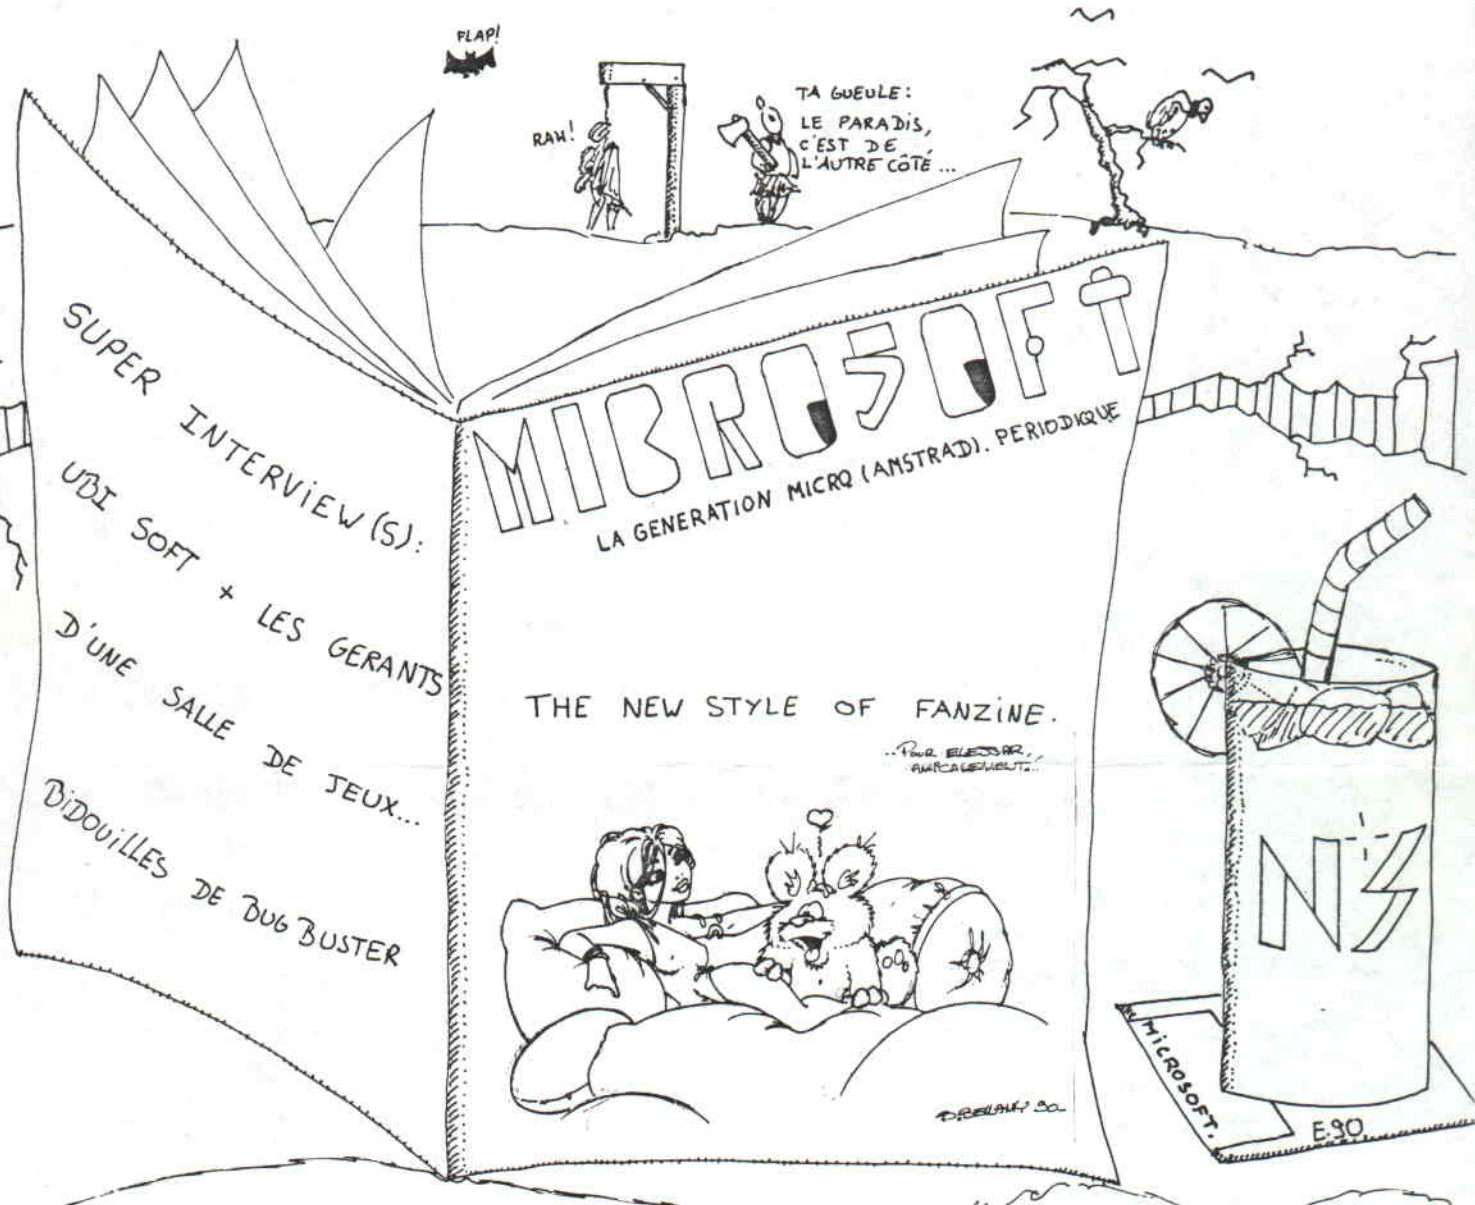 FLAP!
RAH!
TA GUEULE:
LE PARADIS,
C'EST DE
L'AUTRE CÔTÉ...
SUPER INTERVIEW(S):
UBI SOFT + LES GERANTS
D'UNE SALLE DE JEUX...
BIDOUILLES DE BUG BUSTER
MICROSOFT
LA GENERATION MICRO (AMSTRAD). PERIODIQUE
THE NEW STYLE OF FANZINE.
..POUR ELESSAR,
AMICALEMENT...
D.BELLAMY 90
N°5
MICROSOFT.
E.90